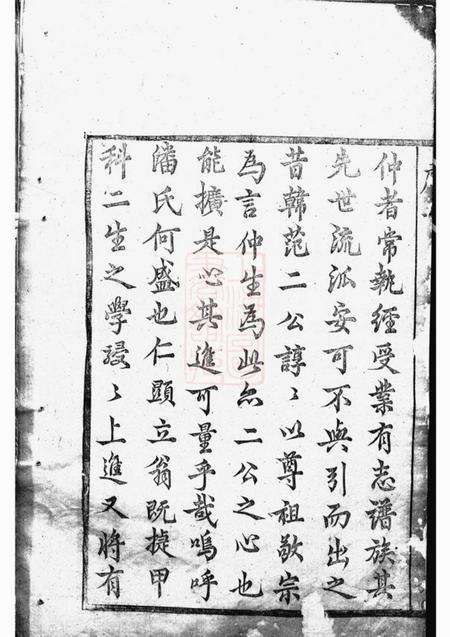 仲者常執經受業有志譜族其
先世流派安可不與引而出之
昔韓范二公諄〻以尊祖敬宗
為言仲生為此亦二公之心也
能擴是心其進可量乎哉嗚呼
潘氏何盛也仁顯立翁既捷甲
科二生之學駸〻上進又將有